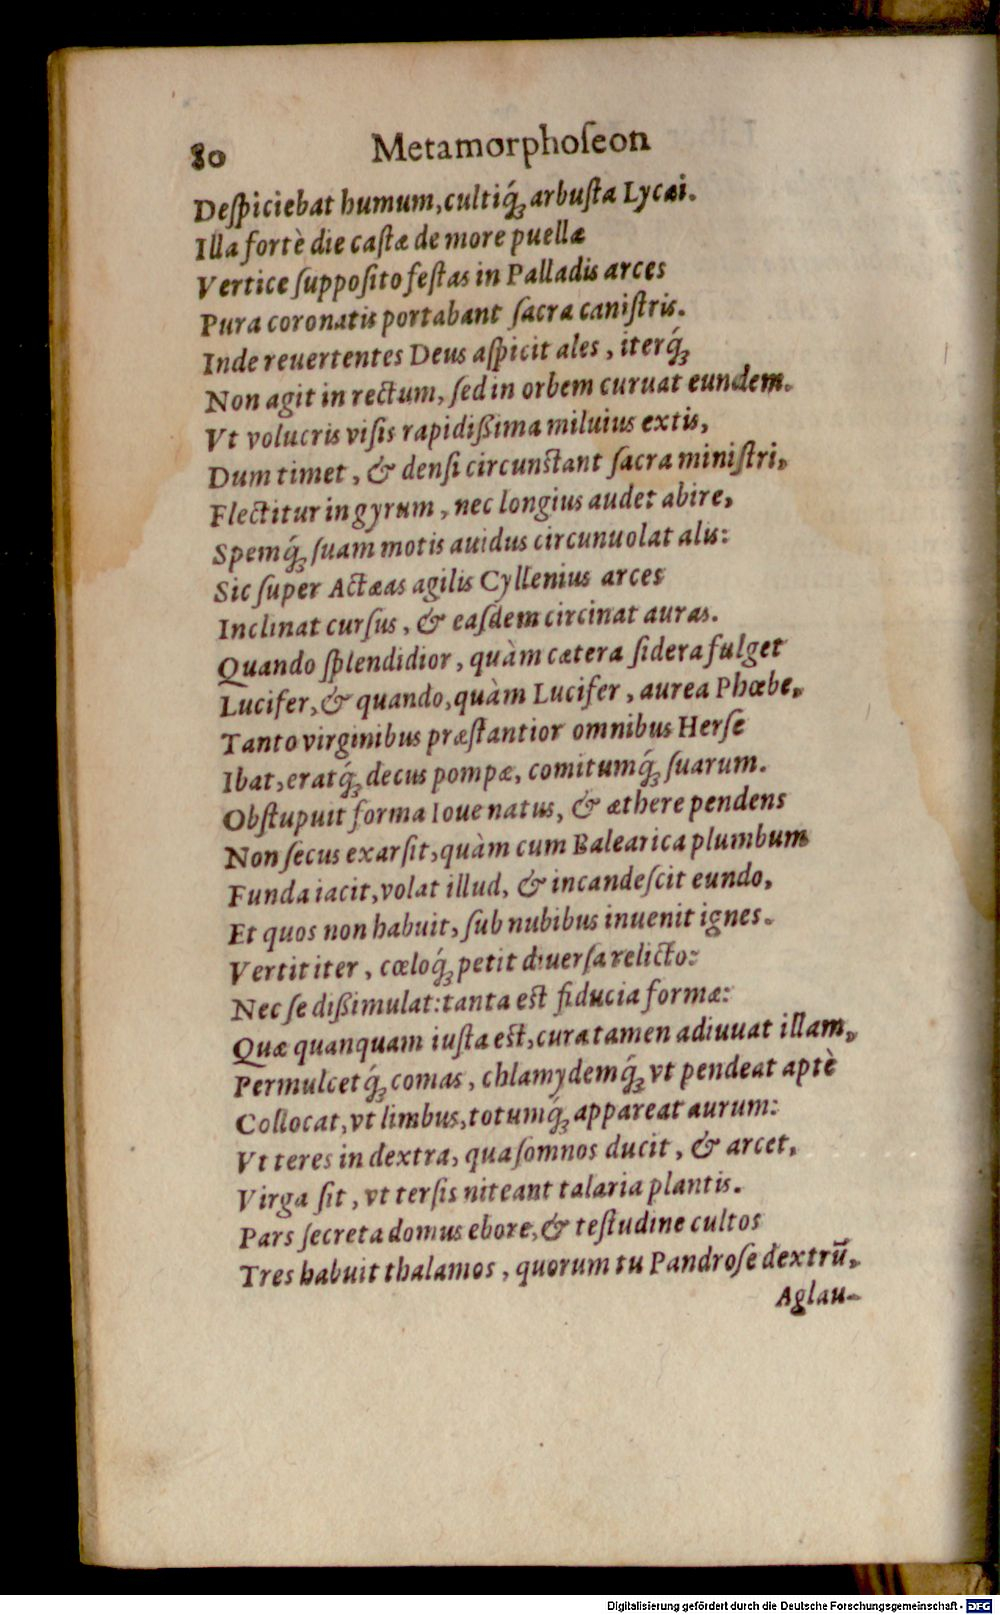 80 Metamorphoseon
Deſpiciebat humum, cultiq́ꝫ arbuſta Lycæi.
Illa fortè die caſtæ de more puellæ
Vertice ſuppoſito feſtas in Palladis arces
Pura coronatis portabant ſacra caniſtris.
Inde reuertentes Deus aſpicit ales, iterq́ꝫ
Non agit in rectum, ſed in orbem curuat eundem.
Vt volucris viſis rapidißima miluius extis,
Dum timet, & denſi circunſtant ſacra miniſtri,
Flectitur in gyrum, nec longius audet abire,
Spemq́ꝫ ſuam motis auidus circunuolat alis:
Sic ſuper Actæas agilis Cyllenius arces
Inclinat curſus, & eaſdem circinat auras.
Quando ſplendidior, quàm cætera ſidera fulget
Lucifer, & quando, quàm Lucifer, aurea Phœbe,
Tanto virginibus præſtantior omnibus Herſe
Ibat, eratq́ꝫ decus pompæ, comitumq́ꝫ ſuarum.
Obſtupuit forma Ioue natus, & æthere pendens
Non ſecus exarſit, quàm cum Balearica plumbum
Funda iacit, volat illud, & incandeſcit eundo,
Et quos non habuit, ſub nubibus inuenit ignes.
Vertit iter, cœloq́ꝫ petit diuerſa relicto:
Nec ſe dißimulat: tanta eſt fiducia formæ:
Quæ quanquam iuſta eſt, cura tamen adiuuat illam,
Permulcetq́ꝫ comas, chlamydemq́ꝫ vt pendeat aptè
Collocat, vt limbus, totumq́ꝫ appareat aurum:
Vt teres in dextra, qua ſomnos ducit, & arcet,
Virga ſit, vt terſis niteant talaria plantis.
Pars ſecreta domus ebore, & teſtudine cultos
Tres habuit thalamos, quorum tu Pandroſe dextrū,
Aglau-
Digitalisierung gefördert durch die Deutsche Forschungsgemeinschaft - DFG